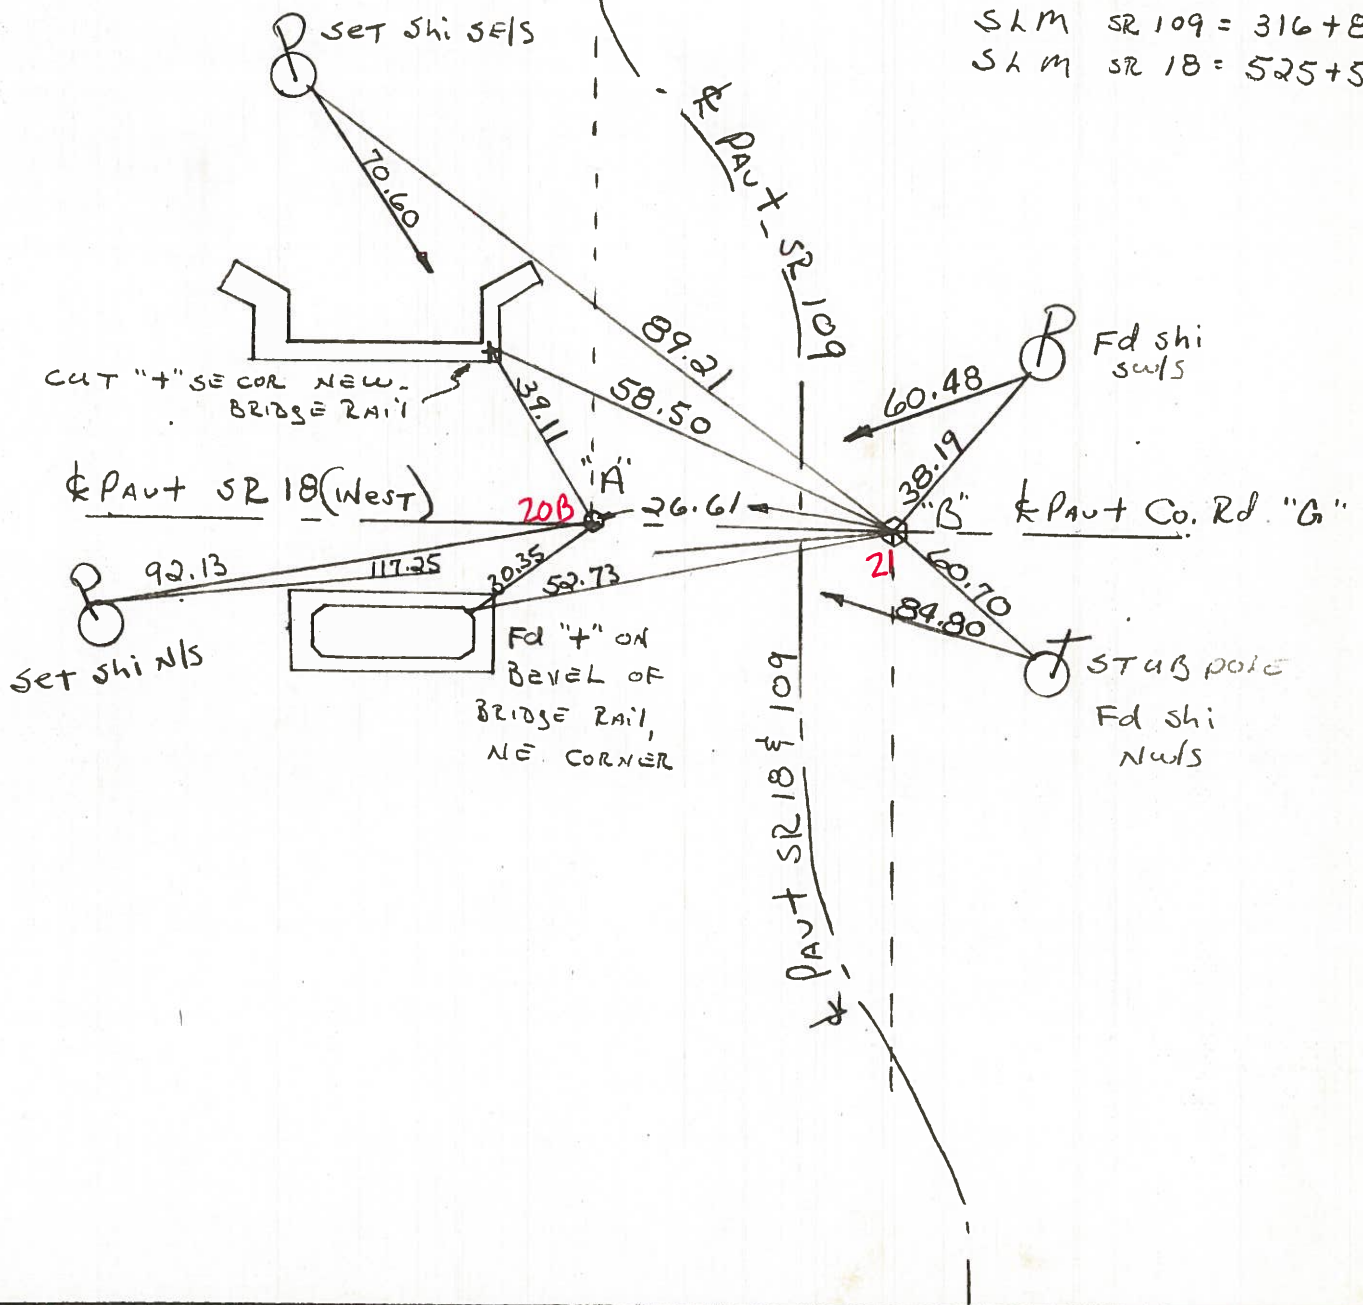 SET Shi SE/S
SLM SR 109 = 316+8
SLM SR 18 = 525+5
70.60
℄ PAVt SR 109
89.21
Fd Shi
SW/S
CUT "+" SE COR NEW
BRIDGE RAil
58.50
39.11
60.48
38.19
℄ PAVt SR 18 (WEST)
20B
"A"
26.61
"B"
21
℄ PAVt Co. Rd. "G"
92.13
117.25
30.35
52.73
60.70
84.80
SET Shi N/S
Fd "+" ON
BEVEL OF
BRIDGE RAil,
NE. CORNER
STUB POLE
Fd Shi
NW/S
℄ PAVt SR 18 & 109